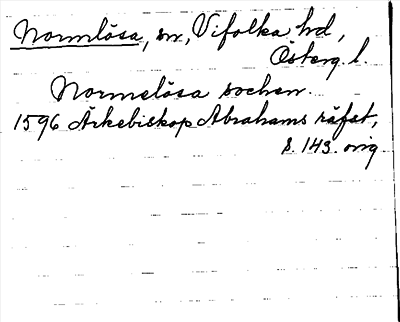 Normlösa, sn, Vifolka hd,
Österg. l.
Normelösa sochen.
1596 Ärkebiskop Abrahams räfst,
s. 143. orig